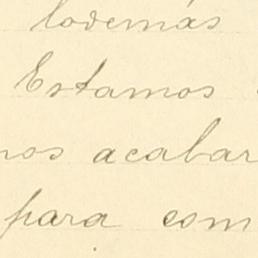 lodemás
Estamos
nos acabar
para com